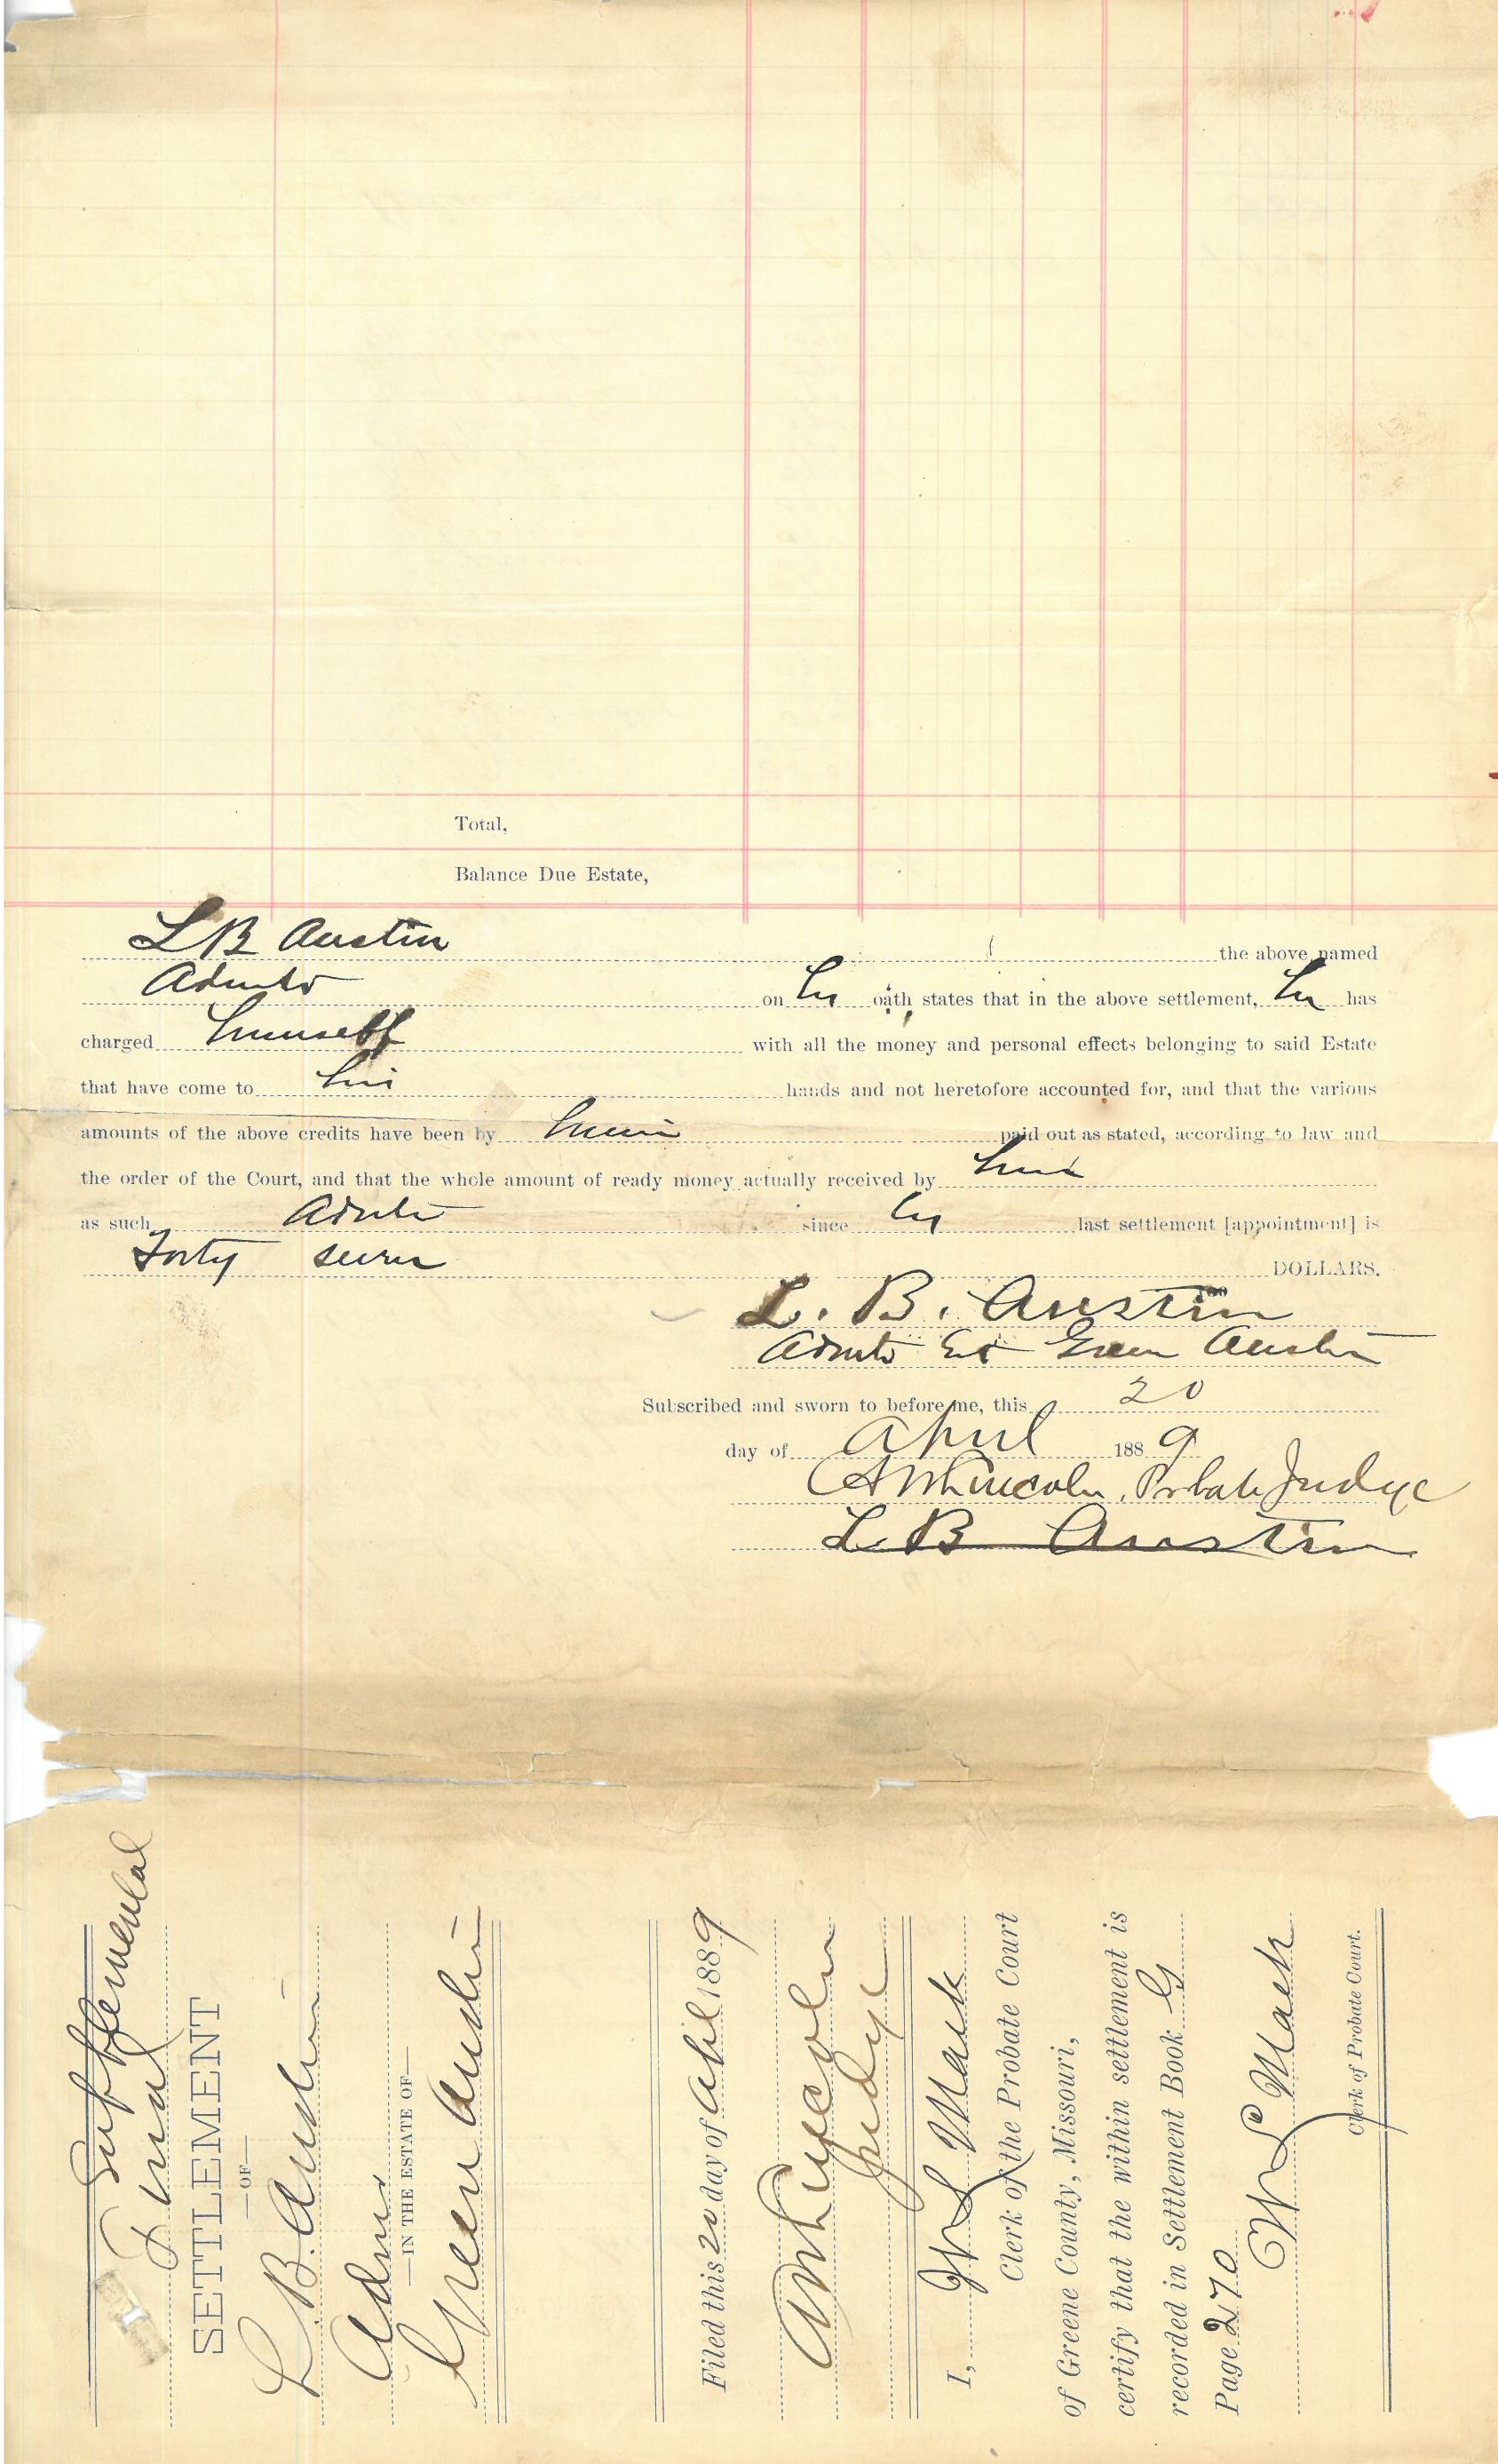 Total,
Balance Due Estate,
L B Austin the above named
Admtr on his oath states that in the above settlement, he has
charged himself with all the money and personal effects belonging to said Estate
that have come to his hands and not heretofore accounted for, and that the various
amounts of the above credits have been by him paid out as stated, according to law and
the order of the Court, and that the whole amount of ready money actually received by him
as such Admtr since his last settlement [appointment] is
Forty seven DOLLARS.
L. B. Austin
Admtr Est Green Austin
Subscribed and sworn to before me, this 20
day of April 1889
A W Lincoln, Probate Judge
L B Austin
Supplemental
Final
SETTLEMENT
—OF—
L. B. Austin
Admr
—IN THE ESTATE OF—
Green Austin
Filed this 20 day of April 1889
A W Lincoln
Judge
I, W L Mack
Clerk of the Probate Court
of Greene County, Missouri,
certify that the within settlement is
recorded in Settlement Book G
Page 270
W L Mack
Clerk of Probate Court.